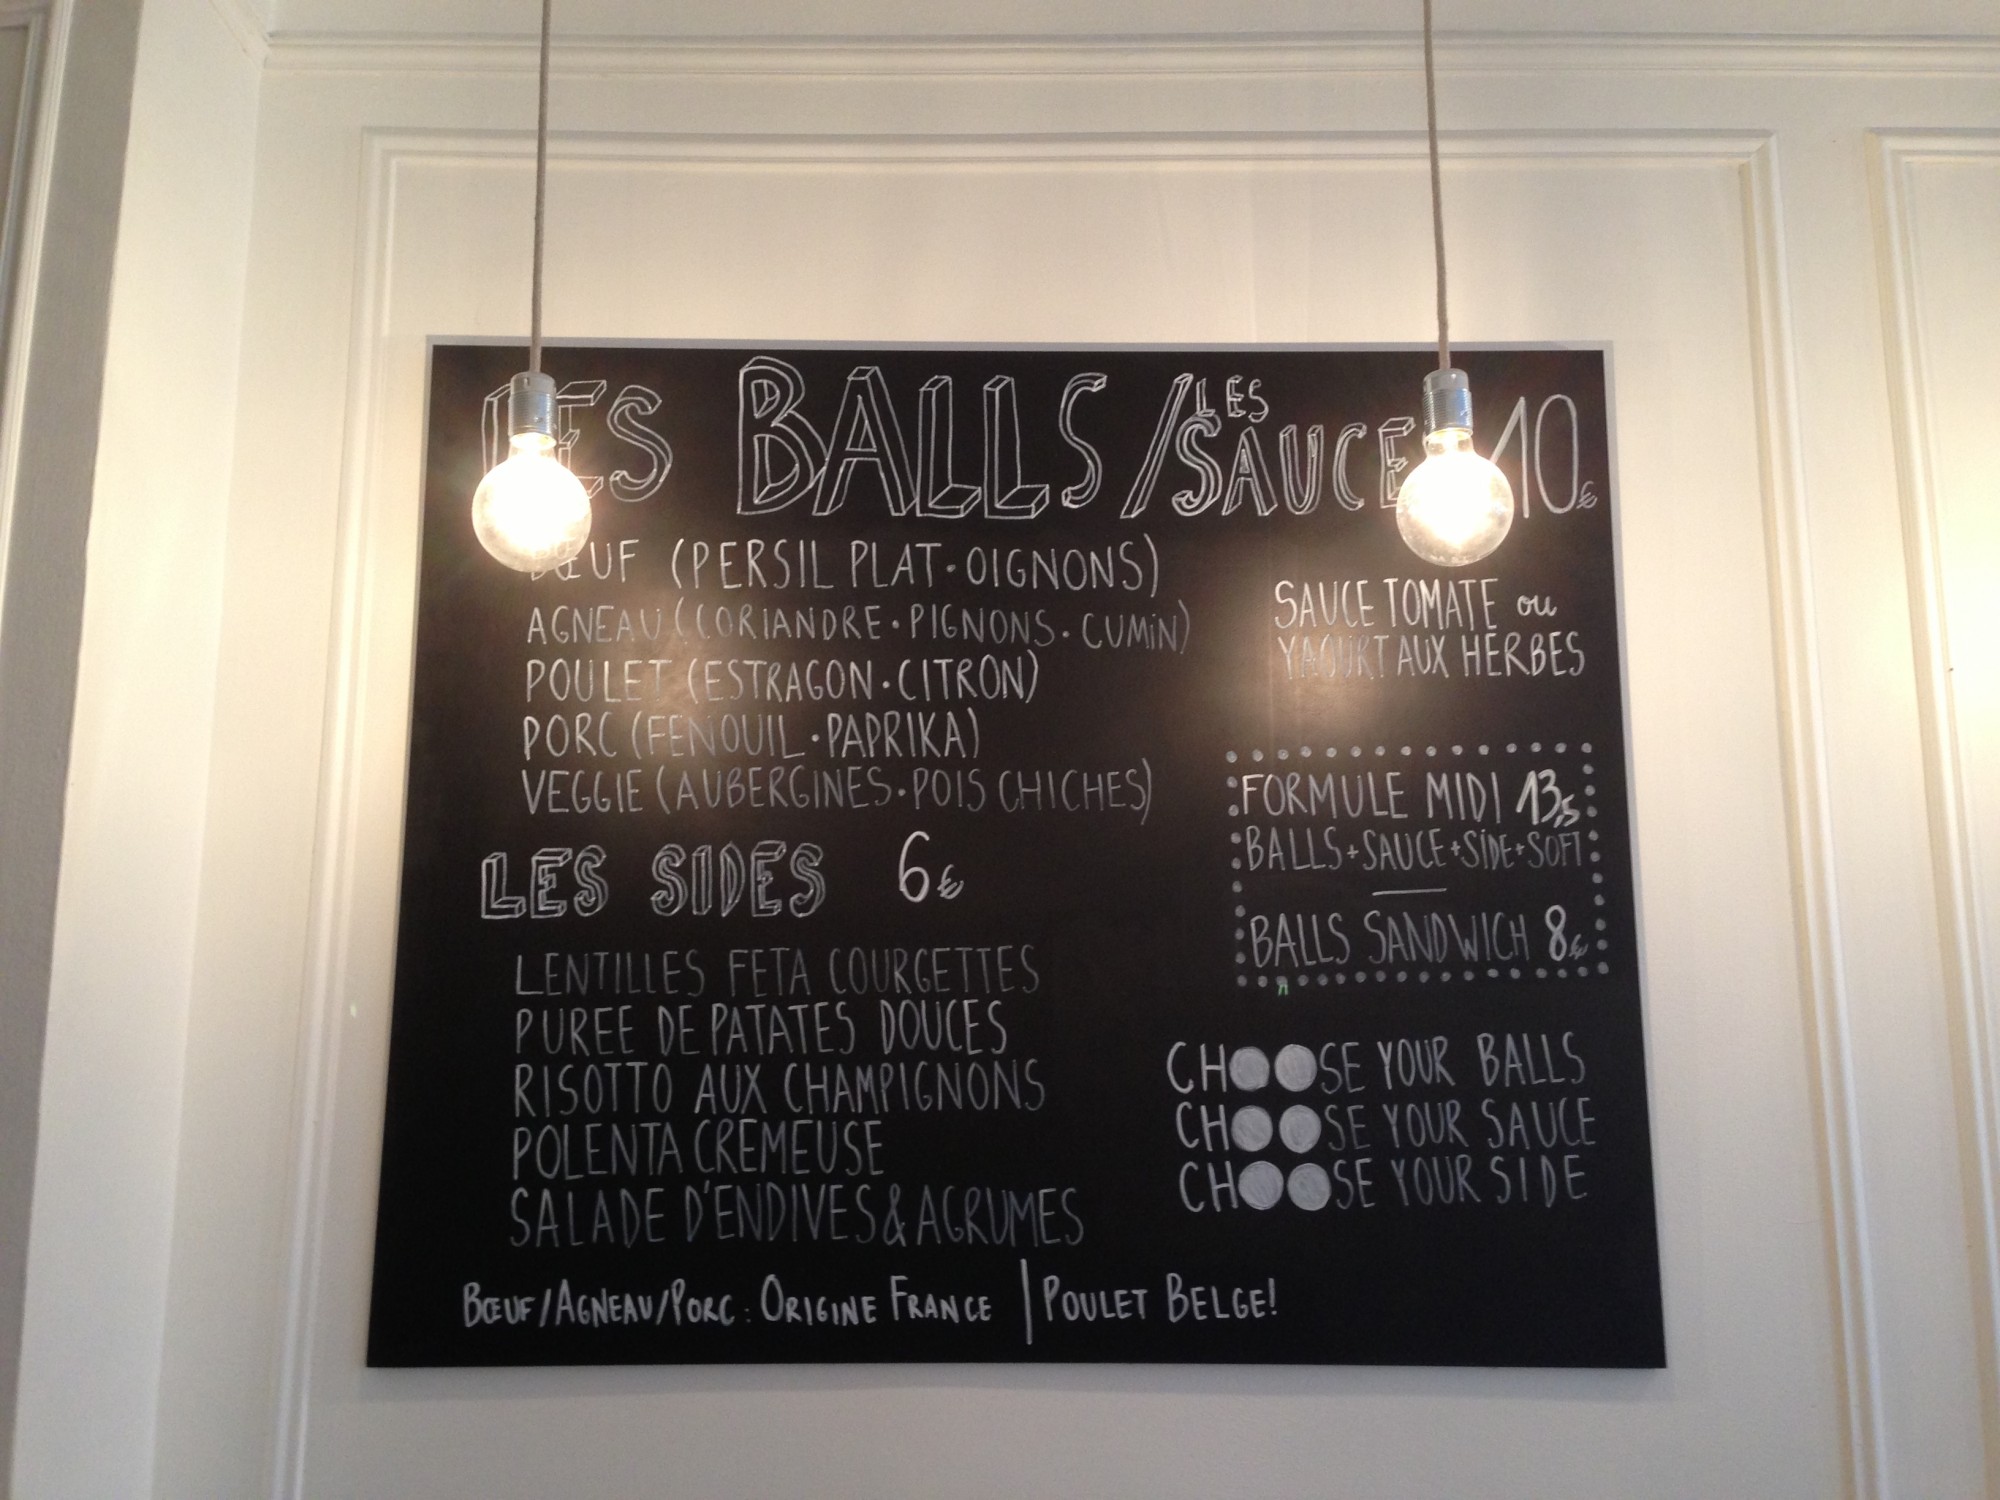 LES BALLS / LES SAUCE 10€
BŒUF (PERSIL PLAT · OIGNONS)
AGNEAU (CORIANDRE · PIGNONS · CUMIN)
POULET (ESTRAGON · CITRON)
PORC (FENOUIL · PAPRIKA)
VEGGIE (AUBERGINES · POIS CHICHES)
SAUCE TOMATE ou
YAOURT AUX HERBES
FORMULE MIDI 13,5
BALLS + SAUCE + SIDE + SOFT
BALLS SANDWICH 8€
LES SIDES 6€
LENTILLES FETA COURGETTES
PUREE DE PATATES DOUCES
RISOTTO AUX CHAMPIGNONS
POLENTA CREMEUSE
SALADE D'ENDIVES & AGRUMES
CHOOSE YOUR BALLS
CHOOSE YOUR SAUCE
CHOOSE YOUR SIDE
BŒUF/AGNEAU/PORC : ORIGINE FRANCE | POULET BELGE!